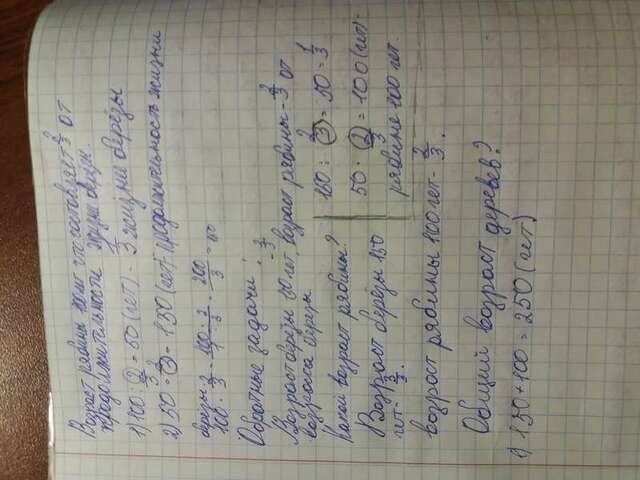 Возраст рябины 100 лет составляет 2/3 от
продолжительности жизни берёзы.
1) 100 : 2 = 50 (лет) - 1/3 жизни берёзы
2) 50 · 3 = 150 (лет) продолжительность жизни
берёзы
100 · 2/3 = 100 · 2 / 3 = 200/3
Обратные задачи:
Возраст берёзы 150 лет, возраст рябины - 2/3 от
возраста берёзы.
Какой возраст рябины?
150 : 3 = 50 = 1/3
50 · 2 = 100 (лет) -
рябине 100 лет.
Возраст берёзы 150
лет - 3/3.
возраст рябины 100 лет - 2/3.
Общий возраст деревьев?
1) 150 + 100 = 250 (лет)